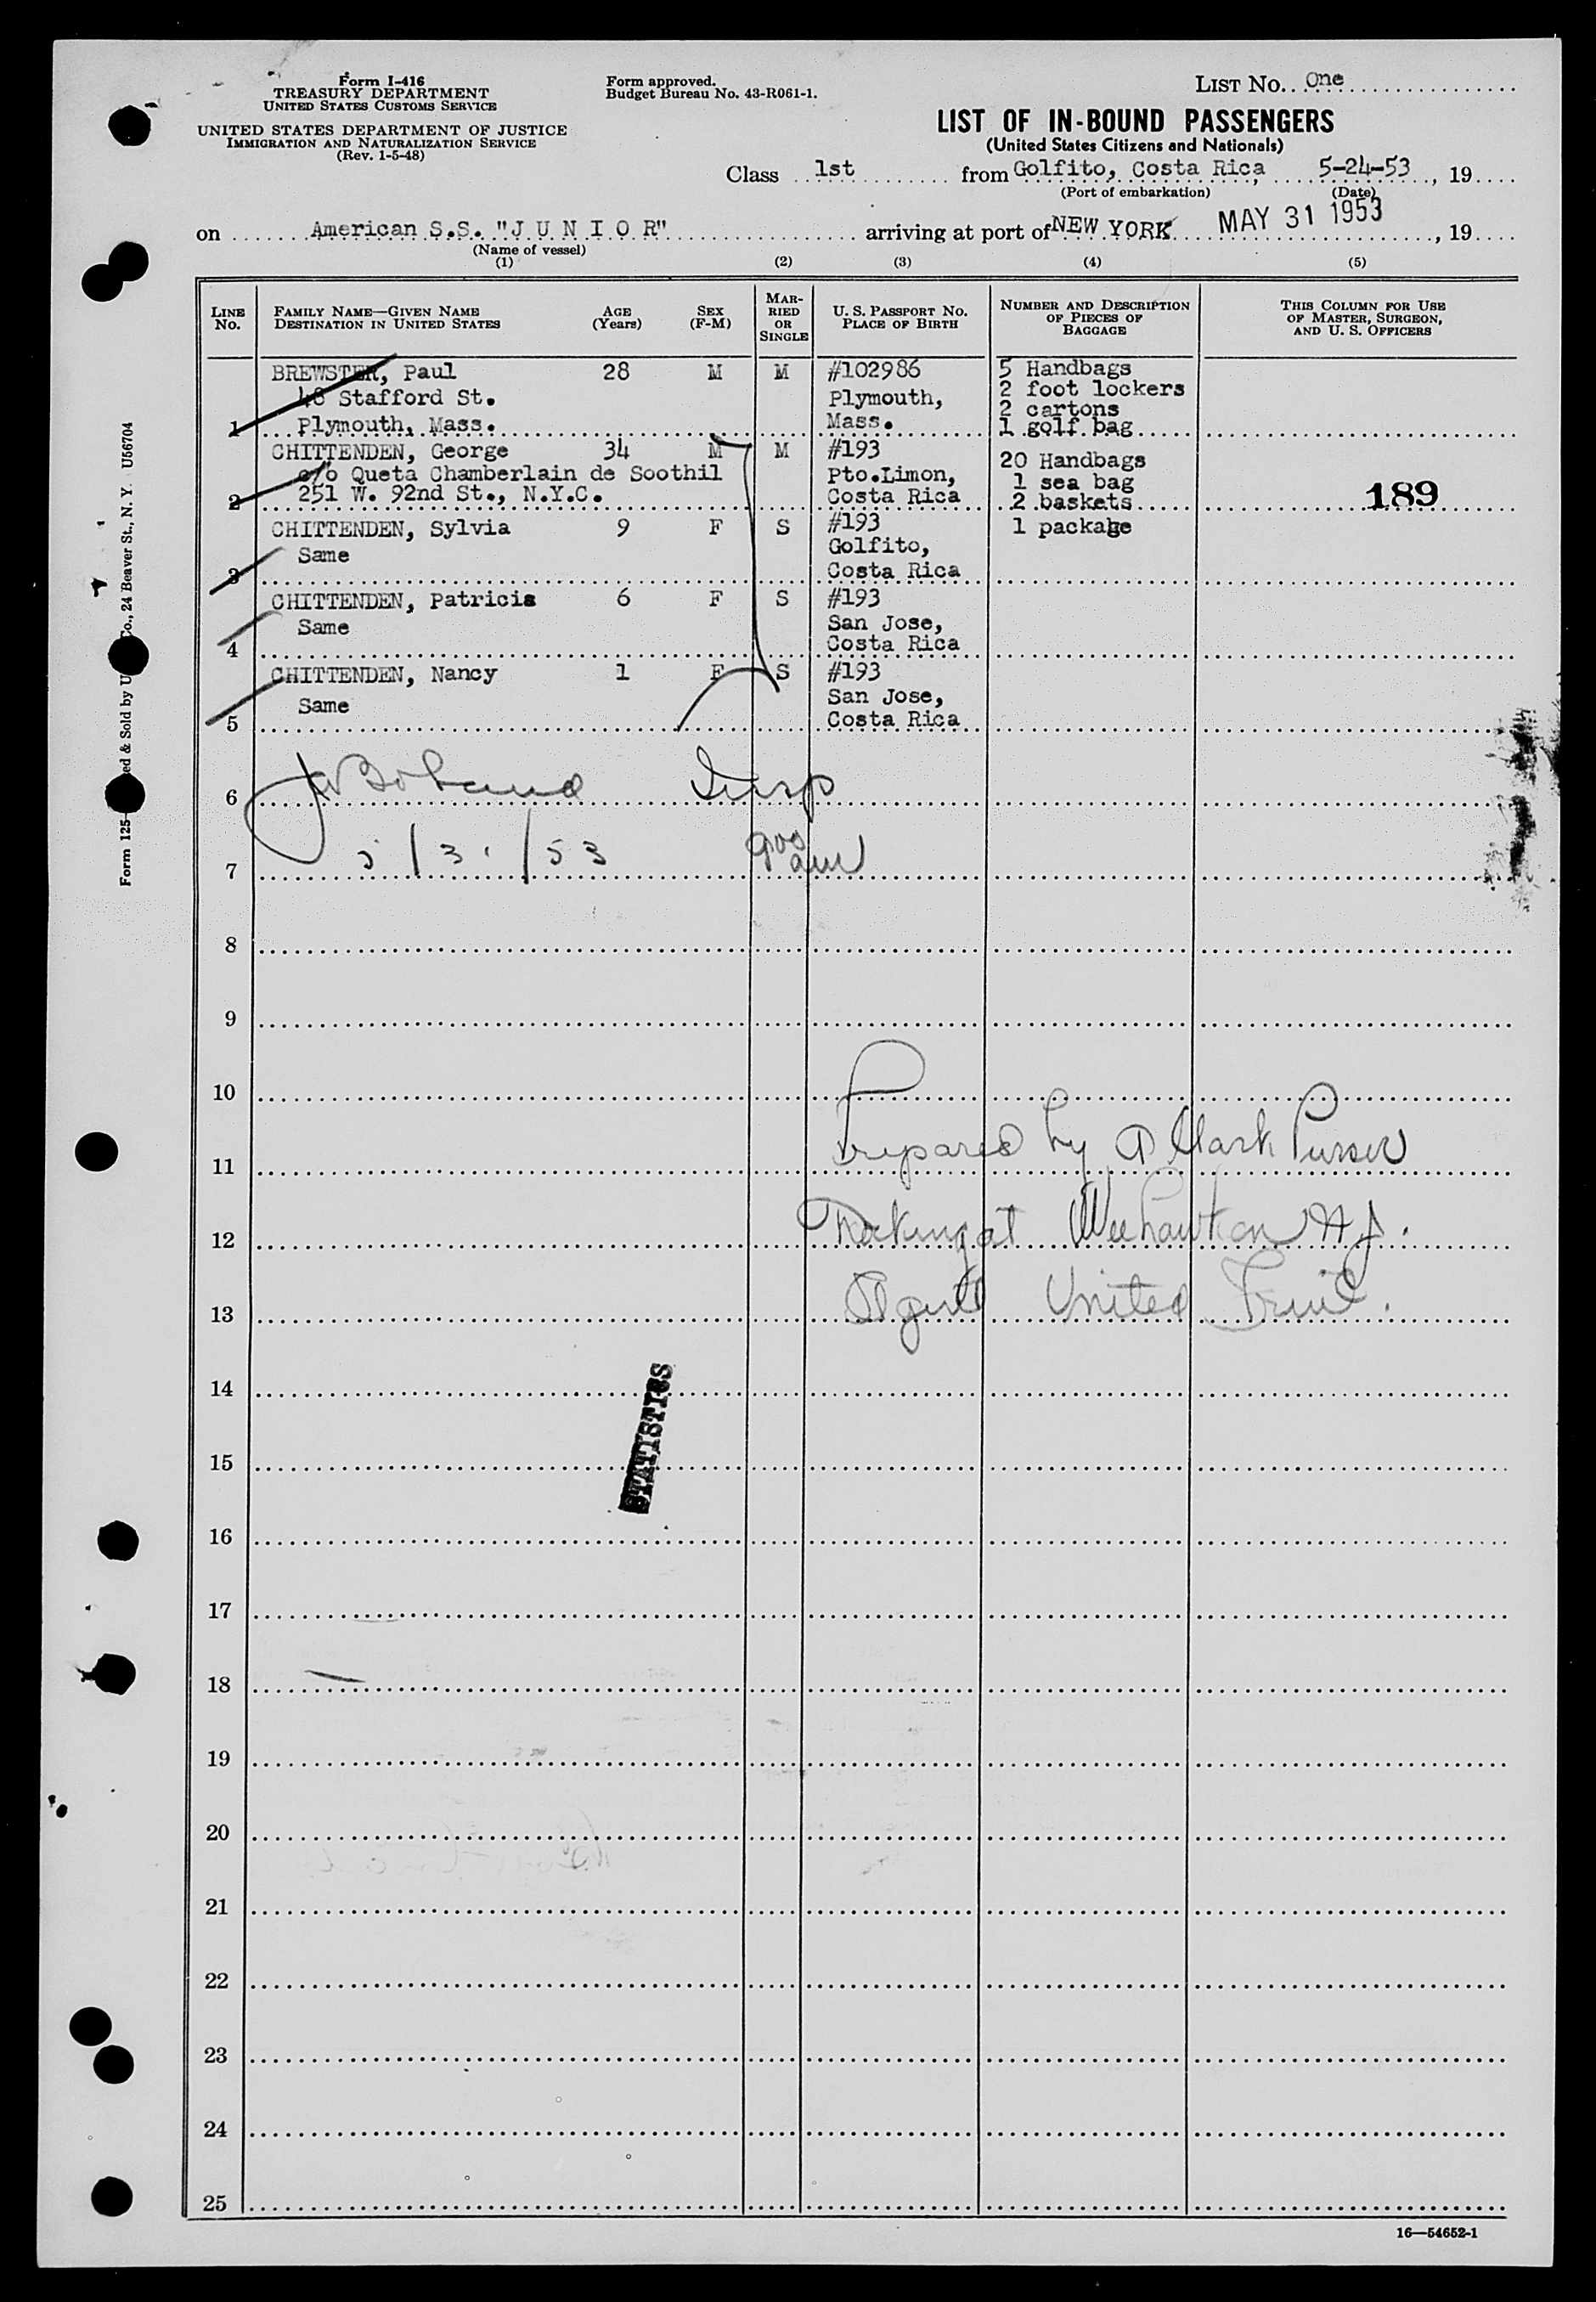 Form I-416
TREASURY DEPARTMENT
UNITED STATES CUSTOMS SERVICE
UNITED STATES DEPARTMENT OF JUSTICE
IMMIGRATION AND NATURALIZATION SERVICE
(Rev. 1-5-48)
Form approved.
Budget Bureau No. 43-R061-1.
LIST No. One
LIST OF IN-BOUND PASSENGERS
(United States Citizens and Nationals)
Class 1st from Golfito, Costa Rica, 5-24-53, 19
(Port of embarkation) (Date)
on American S.S. "J U N I O R" arriving at port of NEW YORK MAY 31 1953, 19
(Name of vessel)
(1) (2) (3) (4) (5)
LINE No. FAMILY NAME—GIVEN NAME DESTINATION IN UNITED STATES AGE (Years) SEX (F-M) MARRIED OR SINGLE U. S. PASSPORT No. PLACE OF BIRTH NUMBER AND DESCRIPTION OF PIECES OF BAGGAGE THIS COLUMN FOR USE OF MASTER, SURGEON, AND U. S. OFFICERS
BREWSTER, Paul 28 M M #102986 5 Handbags
48 Stafford St. Plymouth, 2 foot lockers
2 cartons
1 Plymouth, Mass. Mass. 1 golf bag
CHITTENDEN, George 34 M M #193 20 Handbags
c/o Queta Chamberlain de Soothil Pto.Limon, 1 sea bag
2 251 W. 92nd St., N.Y.C. Costa Rica 2 baskets 189
CHITTENDEN, Sylvia 9 F S #193 1 package
Same Golfito,
3 Costa Rica
CHITTENDEN, Patricia 6 F S #193
Same San Jose,
4 Costa Rica
CHITTENDEN, Nancy 1 F S #193
Same San Jose,
5 Costa Rica
6 Insp
7 5/31/53 9 00 am
8
9
10
11 Prepared by A Clark Purser
12 Docking at Weehawken N J.
13 Agent United Fruit.
14
STATISTICS
15
16
17
18
19
20
21
22
23
24
25
16—54652-1
Form 125- ed & Sold by U Co., 24 Beaver St., N. Y. U56704